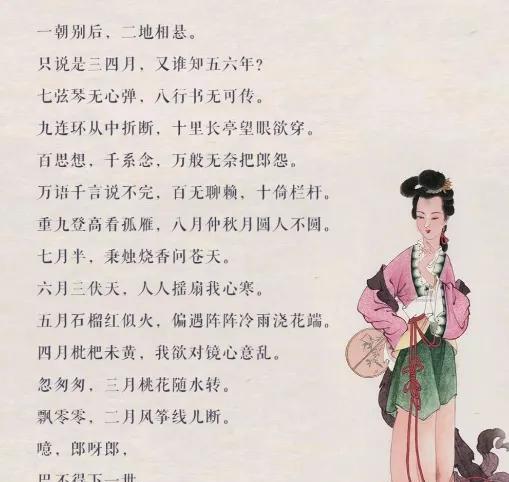 一朝别后，二地相悬。
只说是三四月，又谁知五六年？
七弦琴无心弹，八行书无可传。
九连环从中折断，十里长亭望眼欲穿。
百思想，千系念，万般无奈把郎怨。
万语千言说不完，百无聊赖，十倚栏杆。
重九登高看孤雁，八月仲秋月圆人不圆。
七月半，秉烛烧香问苍天。
六月三伏天，人人摇扇我心寒。
五月石榴红似火，偏遇阵阵冷雨浇花端。
四月枇杷未黄，我欲对镜心意乱。
忽匆匆，三月桃花随水转。
飘零零，二月风筝线儿断。
噫，郎呀郎，
巴不得下一世